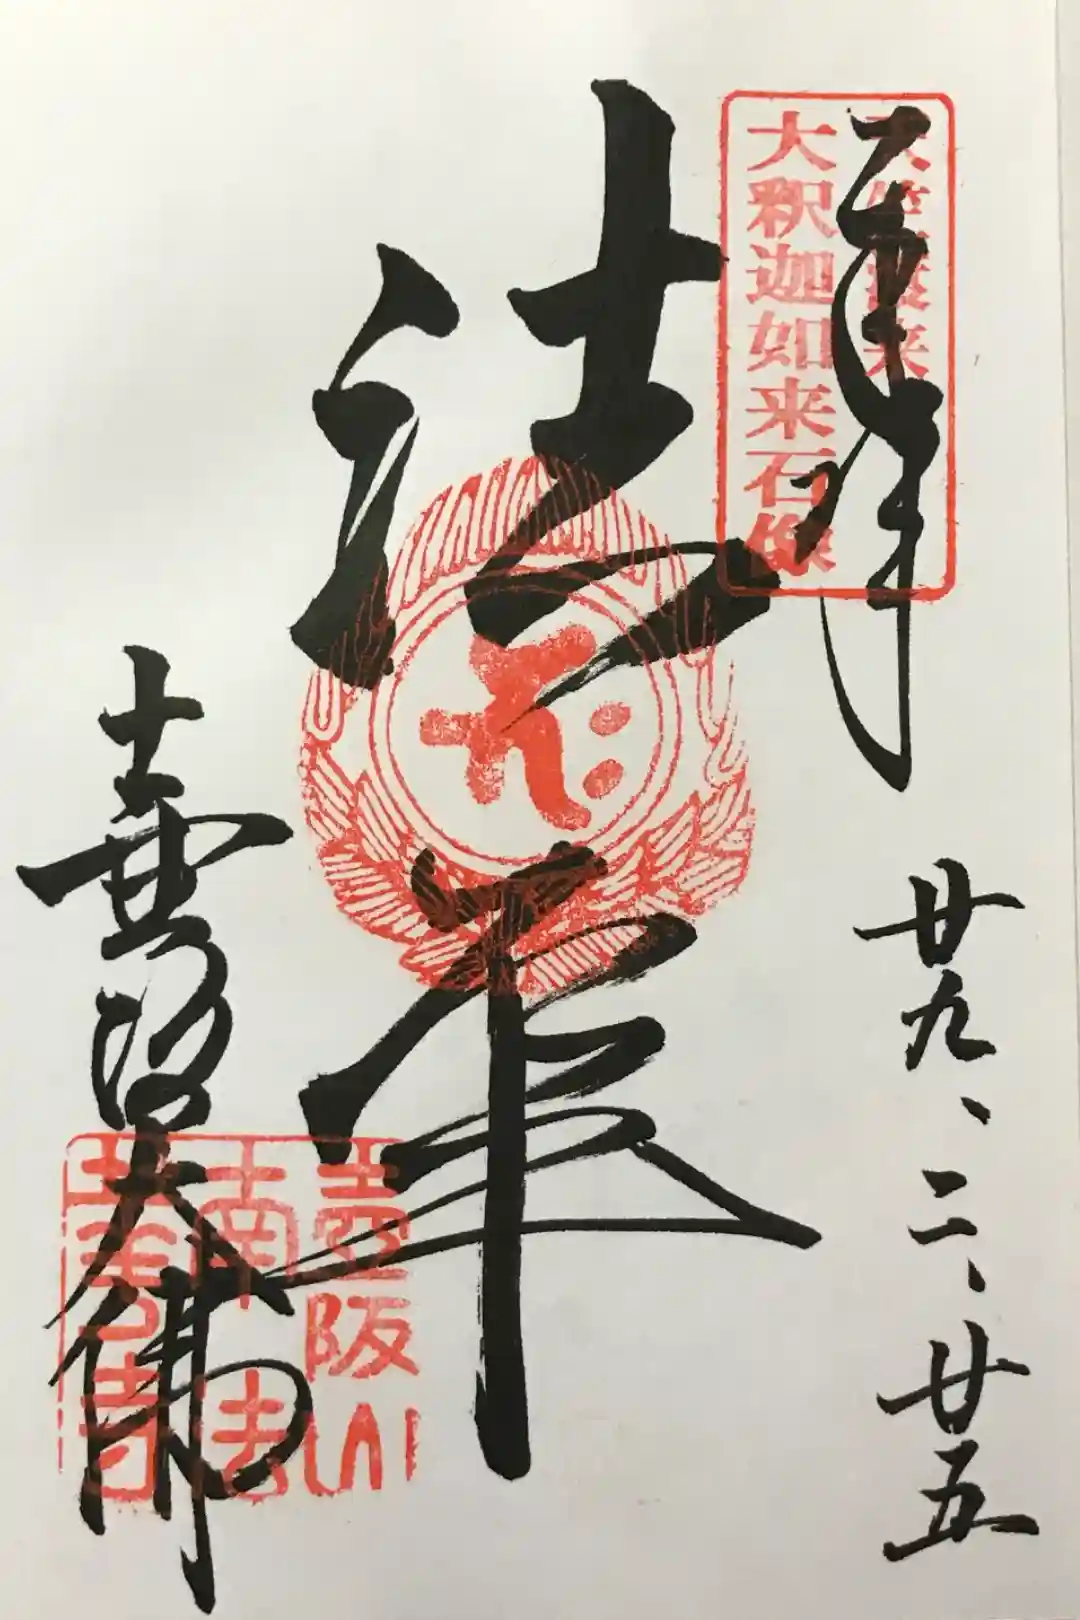 奉拝
廿九、二、廿五
天竺渡来
大釈迦如来石像
法華
壷阪大佛
壷阪山
南法
華寺